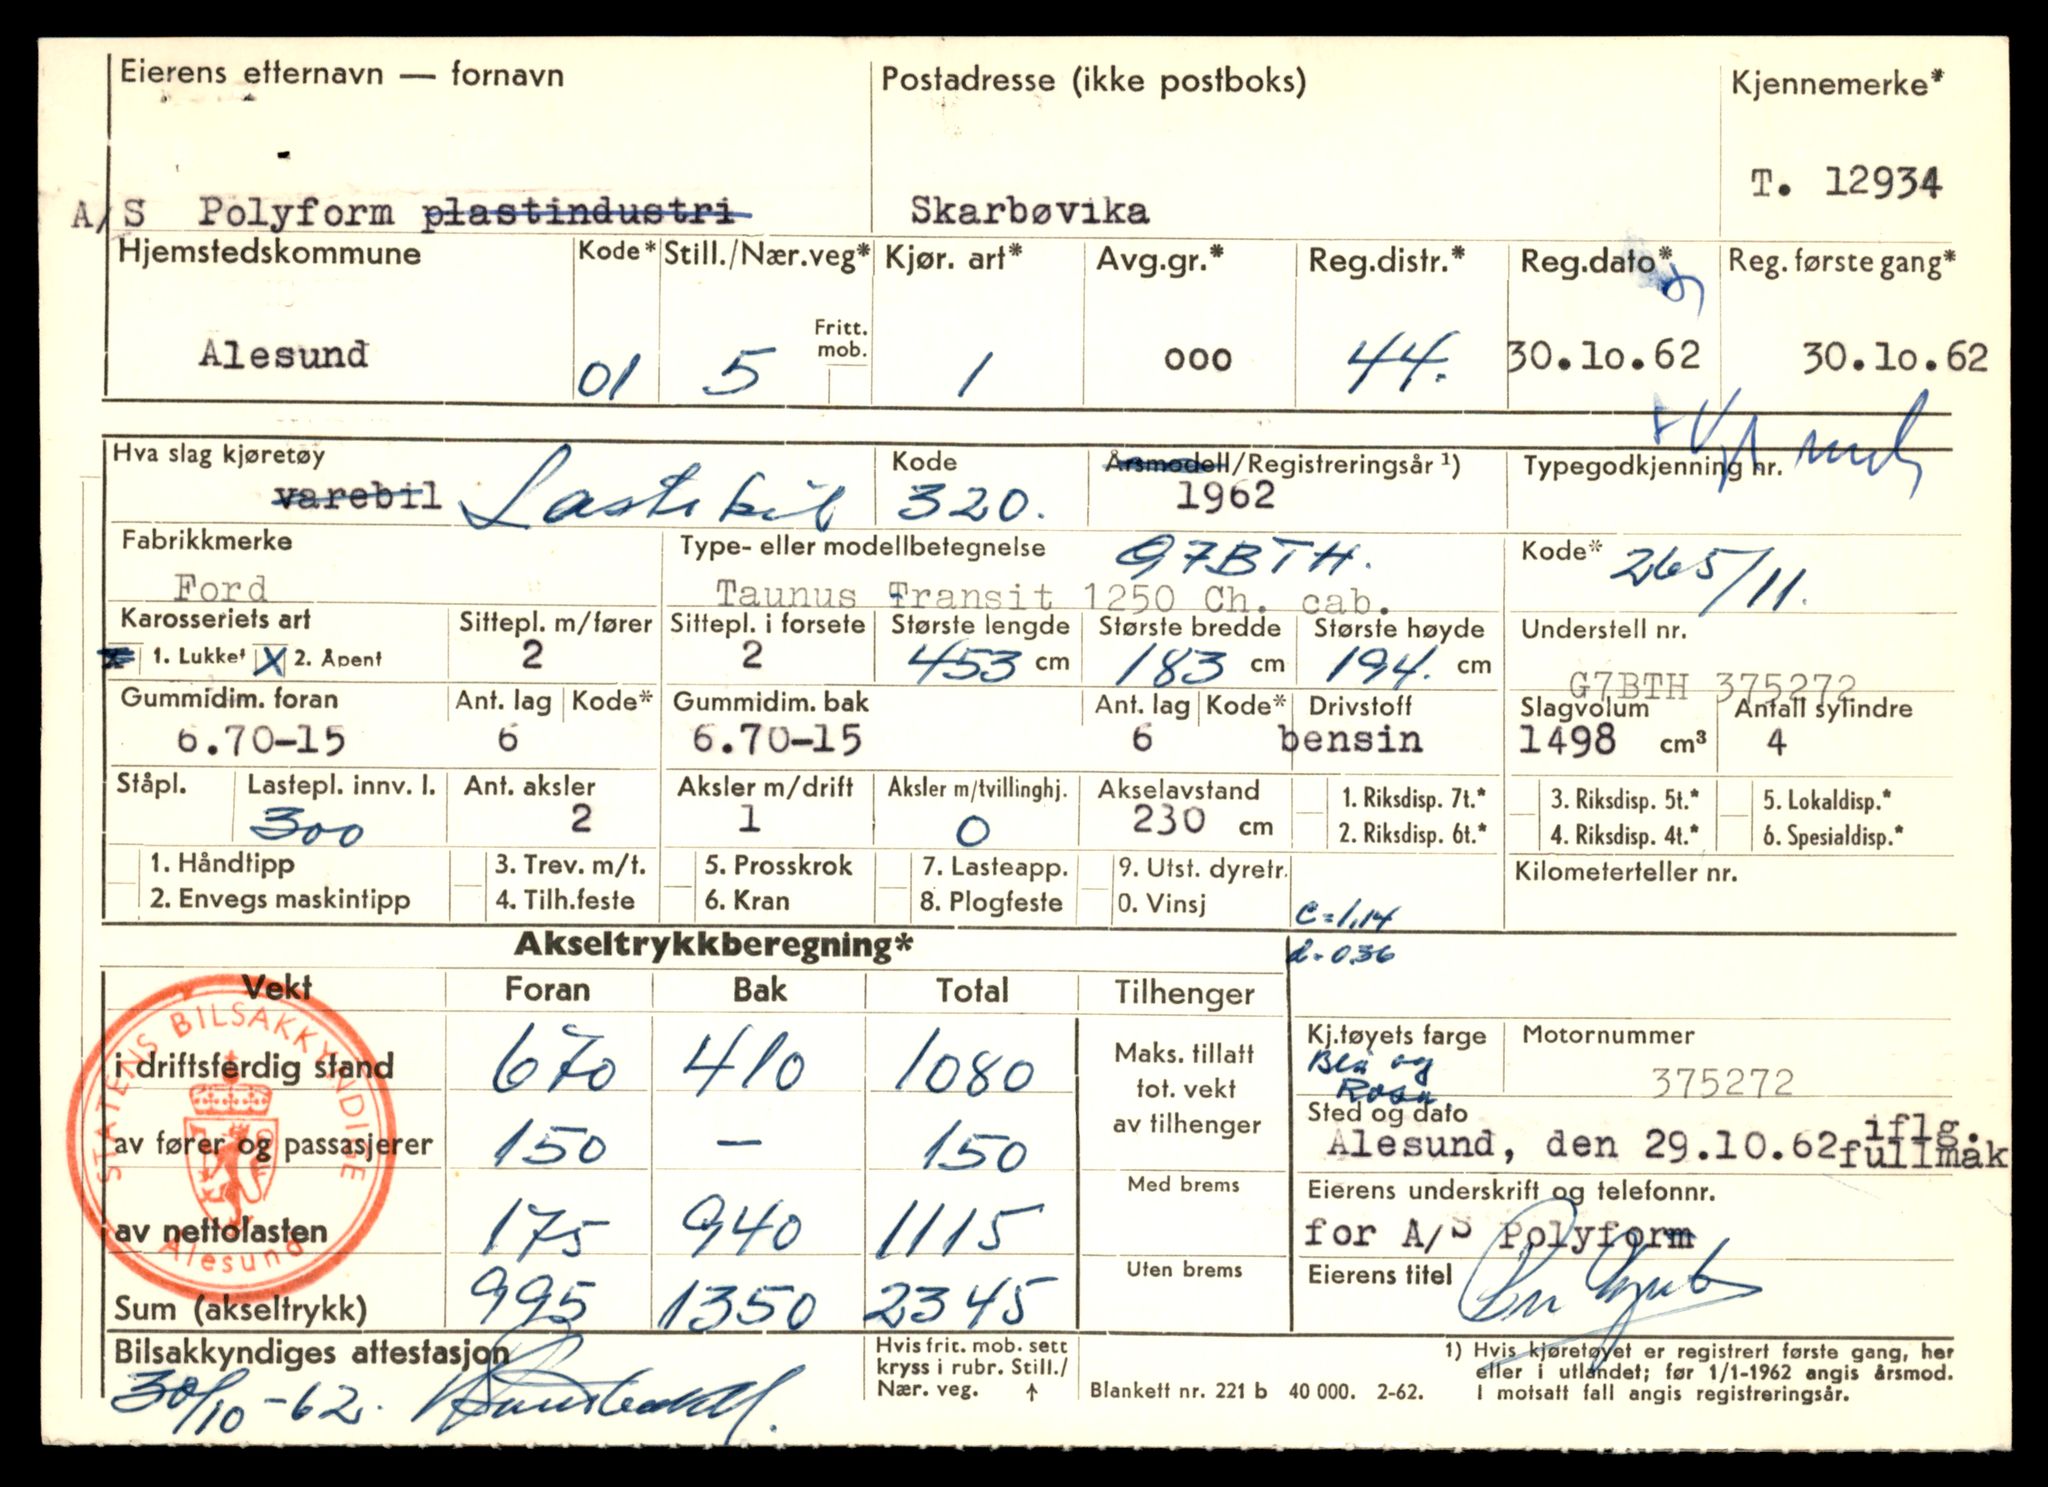 Eierens etternavn — fornavn
Postadresse (ikke postboks)
Kjennemerke*
T. 12934
A/S Polyform plastindustri
Skarbøvika
Hjemstedskommune
Kode*
Still./Nær.veg*
Kjør. art*
Avg.gr.*
Reg.distr.*
Reg.dato*
Reg. første gang*
Fritt. mob.
Alesund
01
5
1
ooo
44.
30.1o.62
30.1o.62
Hva slag kjøretøy
Kode
Årsmodell/Registreringsår ¹)
Typegodkjenning nr.
varebil Lastebil
320.
1962
Fabrikkmerke
Type- eller modellbetegnelse
G7BTH.
Kode*
265/11.
Ford
Taunus Transit 1250 Ch. cab.
Karosseriets art
Sittepl. m/fører
Sittepl. i forsete
Største lengde
Største bredde
Største høyde
Understell nr.
1. Lukket X 2. Åpent
2
2
453 cm
183 cm
194. cm
G7BTH 375272
Gummidim. foran
Ant. lag
Kode*
Gummidim. bak
Ant. lag
Kode*
Drivstoff
Slagvolum
Antall sylindre
6.70-15
6
6.70-15
6
bensin
1498 cm³
4
Ståpl.
Lastepl. innv. l.
Ant. aksler
Aksler m/drift
Aksler m/tvillinghj.
Akselavstand
1. Riksdisp. 7t.*
3. Riksdisp. 5t.*
5. Lokaldisp.*
300
2
1
0
230 cm
2. Riksdisp. 6t.*
4. Riksdisp. 4t.*
6. Spesialdisp.*
1. Håndtipp
3. Trev. m/t.
5. Prosskrok
7. Lasteapp.
9. Utst. dyretr.
Kilometerteller nr.
2. Envegs maskintipp
4. Tilh.feste
6. Kran
8. Plogfeste
0. Vinsj
c=1,14
Akseltrykkberegning*
d=0.36
Vekt
Foran
Bak
Total
Tilhenger
i driftsferdig stand
670
410
1080
Maks. tillatt
tot. vekt
av tilhenger
Kj.tøyets farge
Motornummer
Blå og
Rosa
375272
Sted og dato
av fører og passasjerer
150
—
150
Alesund, den 29.10.62 iflg.
fullmak
Med brems
Eierens underskrift og telefonnr.
av nettolasten
175
940
1115
for A/S Polyform
Uten brems
Eierens titel
Sum (akseltrykk)
995
1350
2345
STATENS BILSAKKYNDIGE
Alesund
Bilsakkyndiges attestasjon
30/10-62.
Hvis frit. mob. sett
kryss i rubr. Still./
Nær. veg. ↑
Blankett nr. 221 b 40 000. 2-62.
1) Hvis kjøretøyet er registrert første gang, her
eller i utlandet; før 1/1-1962 angis årsmod.
I motsatt fall angis registreringsår.